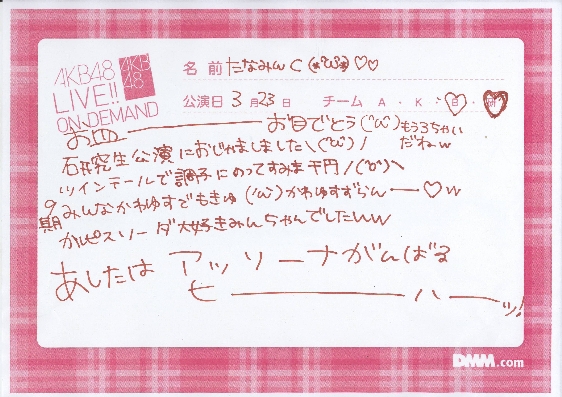 AKB48
LIVE!!
ON DEMAND
AKB
48
名前 たなみんC (*'ω'*)♡♡
公演日 3月23日 チーム A・K・B・研
お皿――――お目でとう('ω')もう3ちゃい
だねw
研究生公演におじゃましました\('ω')/
ツインテールで調子にのってすみま千円/('ω')\
9期みんなかわゆすでもきゅ('ω')かわゆすずらん―♡w
カルピスソーダ大好きみんちゃんでしたww
あしたは アッソーナがんばる
セ――――ハ―ッ!
DMM.com